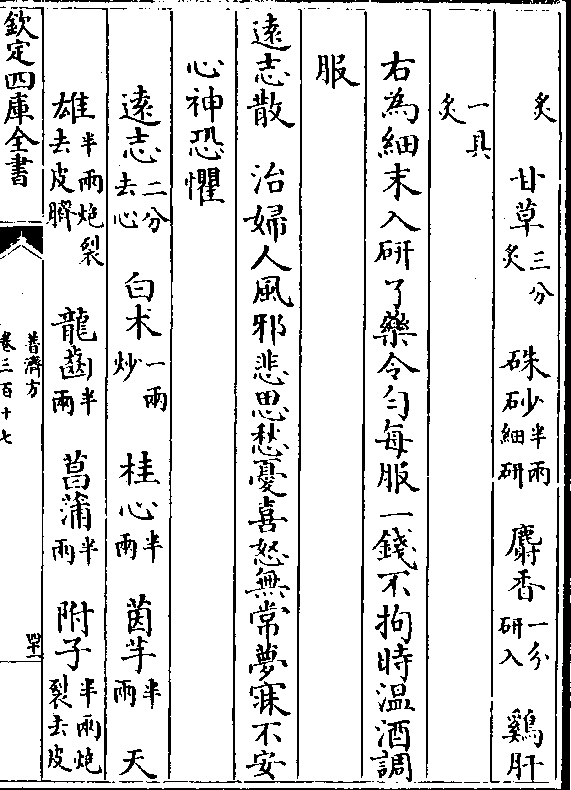 炙　甘草三分炙　硃砂半兩細研　麝香一分研入　雞肝
一具炙
右為細末入研了藥令勻每服一錢不拘時温酒調
服
遠志散　治婦人風邪悲思愁憂喜怒無常夢寐不安
心神恐懼
遠志二分去心　白术一兩炒　桂心半兩　茵芋半兩　天
雄半兩炮裂去皮臍　龍齒半兩　菖蒲半兩　附子半兩炮裂去皮
欽定四庫全書
普濟方
卷三百十七